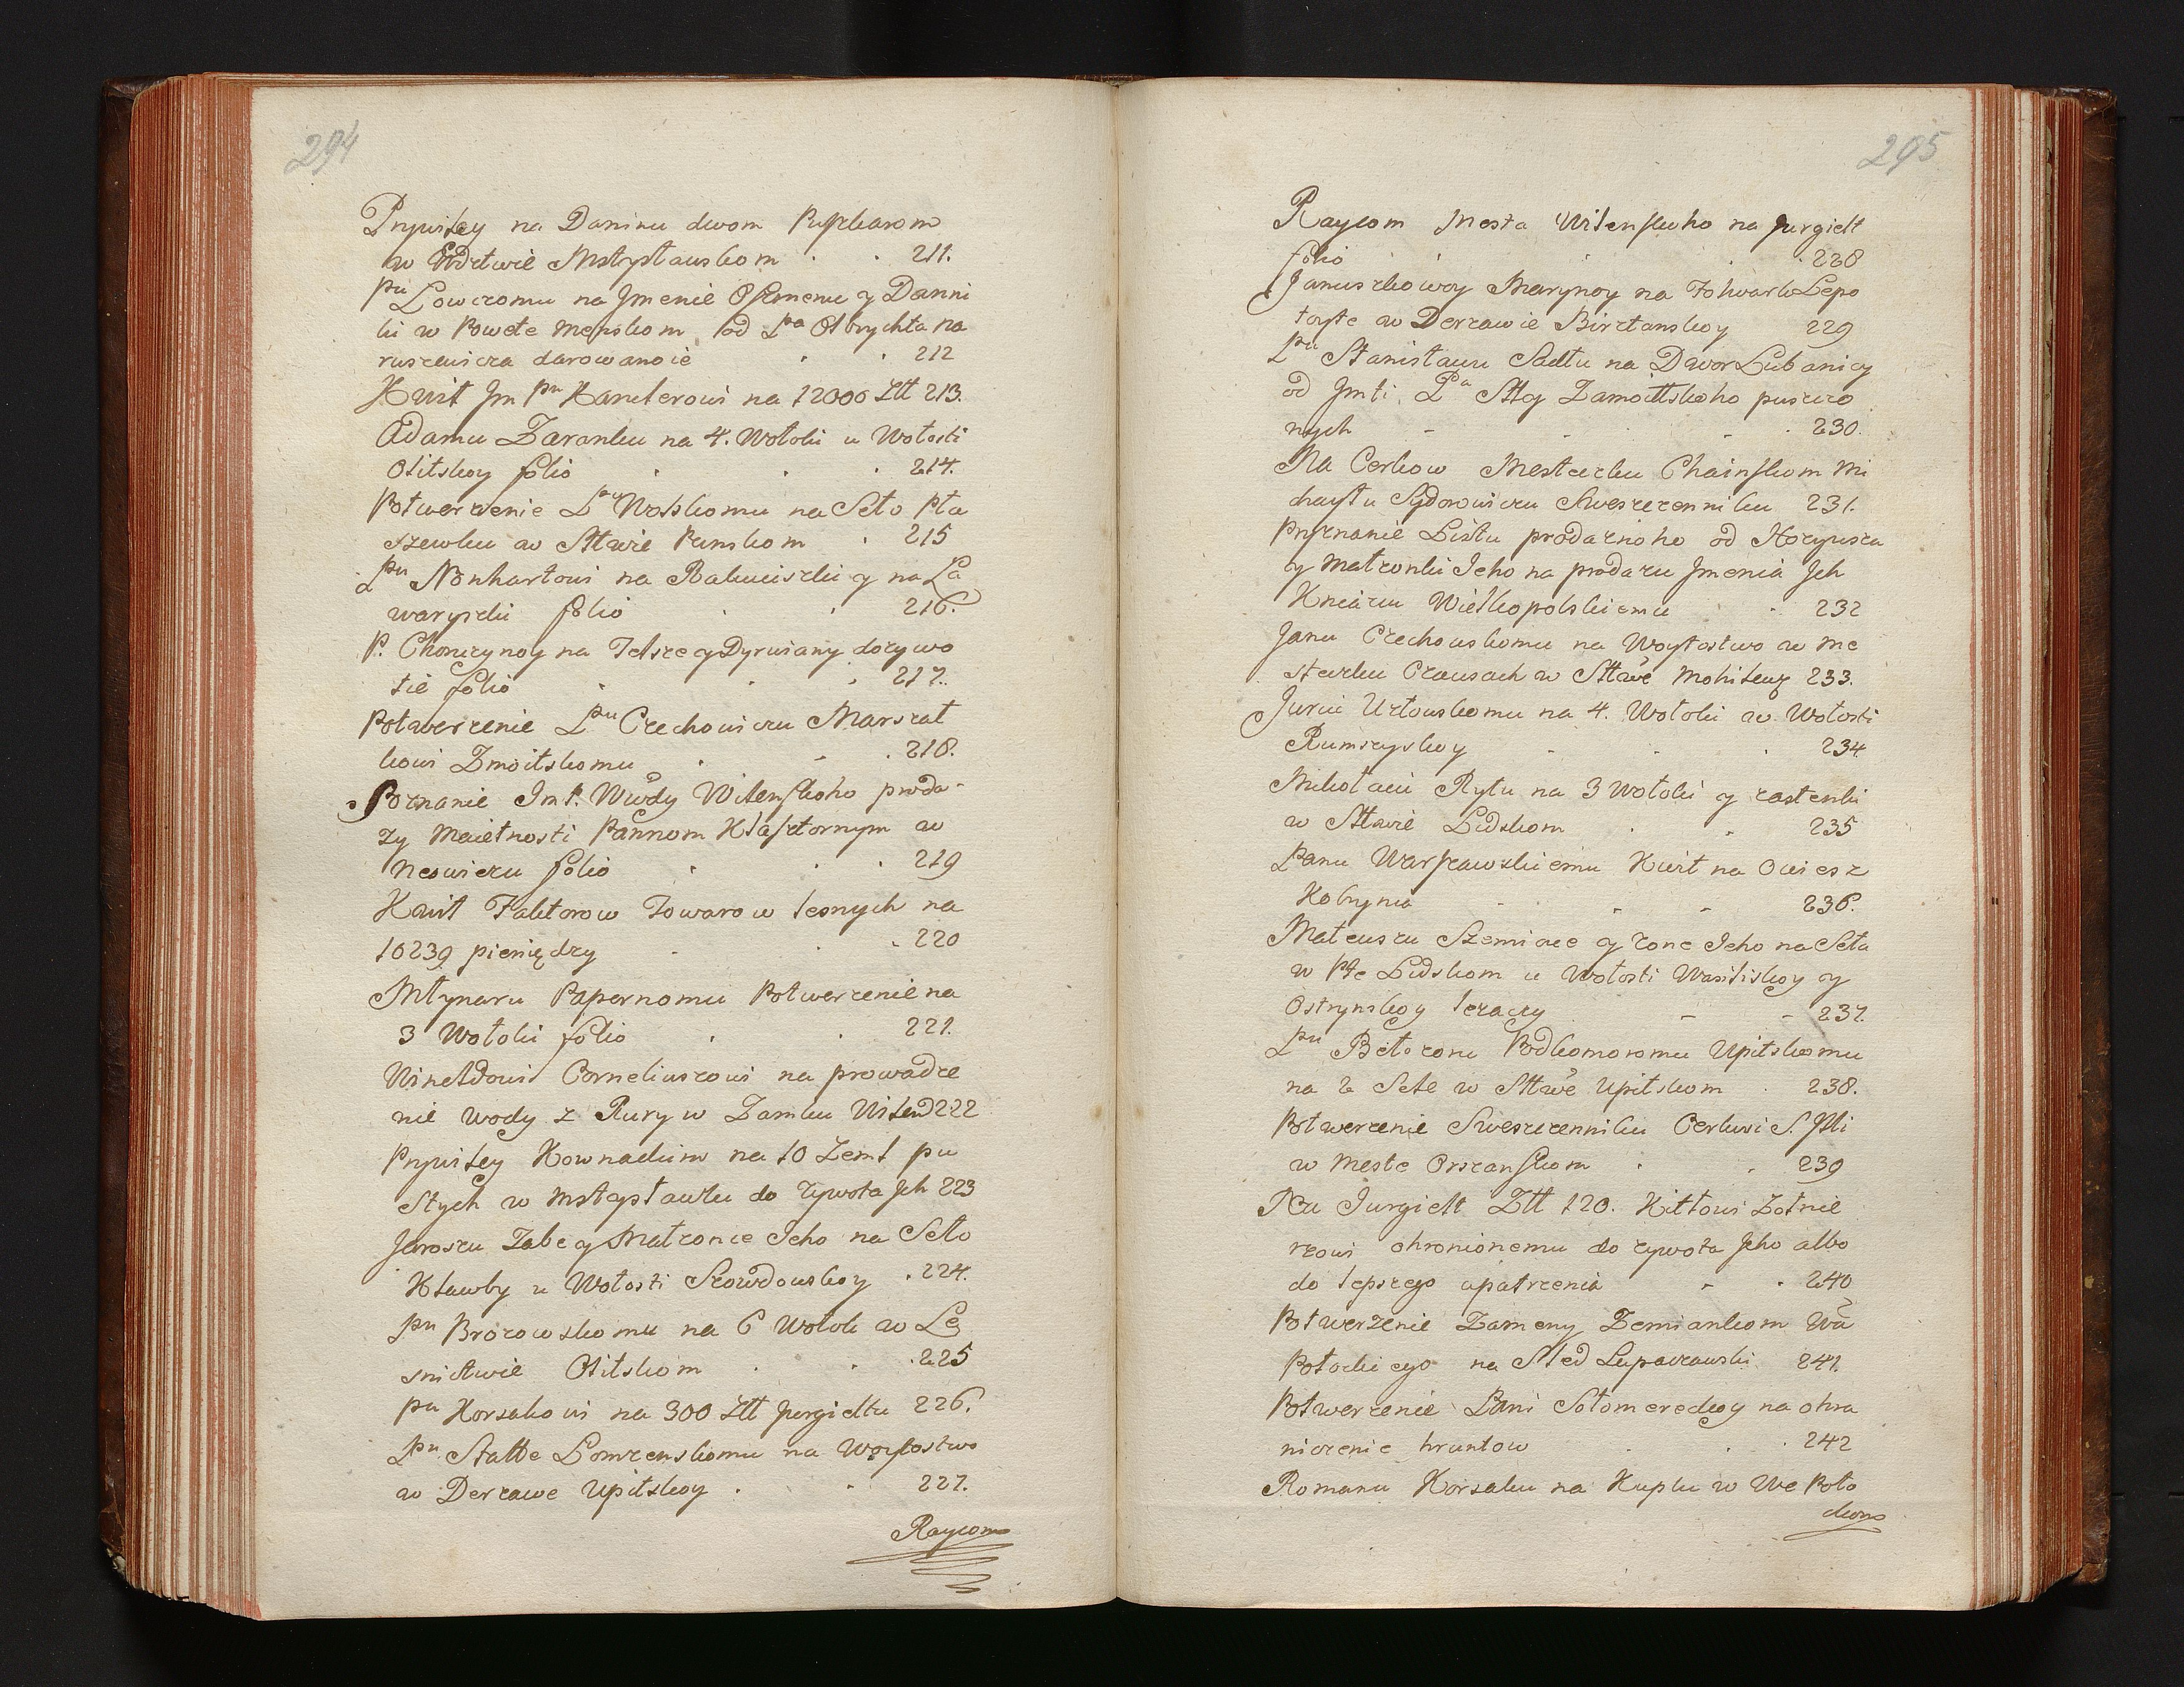 294
Prywiley na Daninu dwom Puszkarom
w Wdztwie Mstysławskom . . 211.
Pnu Łowczomu na Jmenie Oszmenu y Danni
ki w Powete Menskom od Pna Olbrychta Na
ruszewicza darowanoie . . 212
Kwit Jm Pnu Kanclerowi na 12000 Złł 213.
Adamu Zaranku na 4. Wołoki u Wołosti
Olitskoy folio . . . 214.
Potwerzenie Pnu Wolskomu na Seło Pta
szewku w Sttwie Punskom . 215
Pnu Nonhartowi na Rakuciszki y na Ła
waryszki folio . . 216.
P. Chomczynoy na Telsze y Dyrwiany dożywo
tie folio . . . 217.
Potwerzenie Pnu Czechowiczu Marszał
kowi Żmoitskomu . . . 218.
Poznanie Jmt. Wwdy Wilenskoho proda-
ży Maietnosti Pannom Klasztornym w
Neswiezu folio . . . 219
Kwit Faktorow Towarow lesnych na
10239 pieniędzy . . . 220
Młynaru Papernomu Potwerzenie na
3 Wołoki folio . . 221.
Winchdowi Corneliuszowi na prowadze
nie wody z Rury w Zamku Wilend 222
Prywiley Kownackim na 10 Zeml pu
stych w Mstysławlu do żywota Jch 223
Jaroszu Żabe y Małżonce Jeho na Seło
Kławby u Wołosti Szowdowskoy . 224.
Pnu Brozowskomu na 6 Wołok w Le
snictwie Olitskom . . . 225
Pnu Korsakowi na 300 Złł Jurgieltu 226.
Pnu Stabbe Łomzenskomu na Woytostwo
w Derzawe Upitskoy . . 227.
Raycom
295
Raycom Mesta Wilenskoho na Jurgielt
folio . . . . 228
Januszkowoy Marynoy na Folwark Lepo
łoyte w Derzawie Birztanskoy 229
Pnu Stanisławu Sadłu na Dwor Lubanicy
od Jmti Pna Stty Zamoittskoho puszczo
nych - - - . 230.
Na Cerkow Mesteczku Chainskom Mi
chayłu Sydorowiczu Sweszczenniku 231.
Pryznanie Listu prodażnoho od Hoży
y Małżonki Jeho na prodażu Jmenia Jch
Kniażu Wielkopolskiemu . 232
Janu Czechowskomu na Woytostwo w Me
steczku Czausach w Sttwe Mohilewz 233.
Juriu Uzłowskomu na 4. Wołoki w Wołosti
Rumszyskoy - . . 234.
Mikołaiu Rytu na 3 Wołoki y zastenki
w Sttwie Lidskom . . 235
Panu Warszawskiemu Kwit na Owies z
Kobrynia - - - 236.
Mateuszu Szemiote y żone Jeho na Seła
w Pte Lidskom u Wołosti Wasiliskoy y
Ostrynskoy leżaczy - - 237.
Pnu Białłozoru Podkomoromu Upitskomu
na 2 Sele w Sttwe Upitskom . 238.
Potwerzenie Sweszczenniku Cerkwi S. Jlii
w Meste Orszanskom . . 239
Na Jurgielt Złł 120. Kittowi Żołnie
rzowi ohronionemu do żywota Jeho albo
do lepszego opatrzenia - . 240
Potwerżenie Zameny Zemiankom Wa
Potockiego na Sled Łupaczowski 241.
Potwerzenie Pani Sołomereckoy na ohra
niczenie hruntow . . . 242
Romanu Korsaku na Kuplu w We Poło
ckom